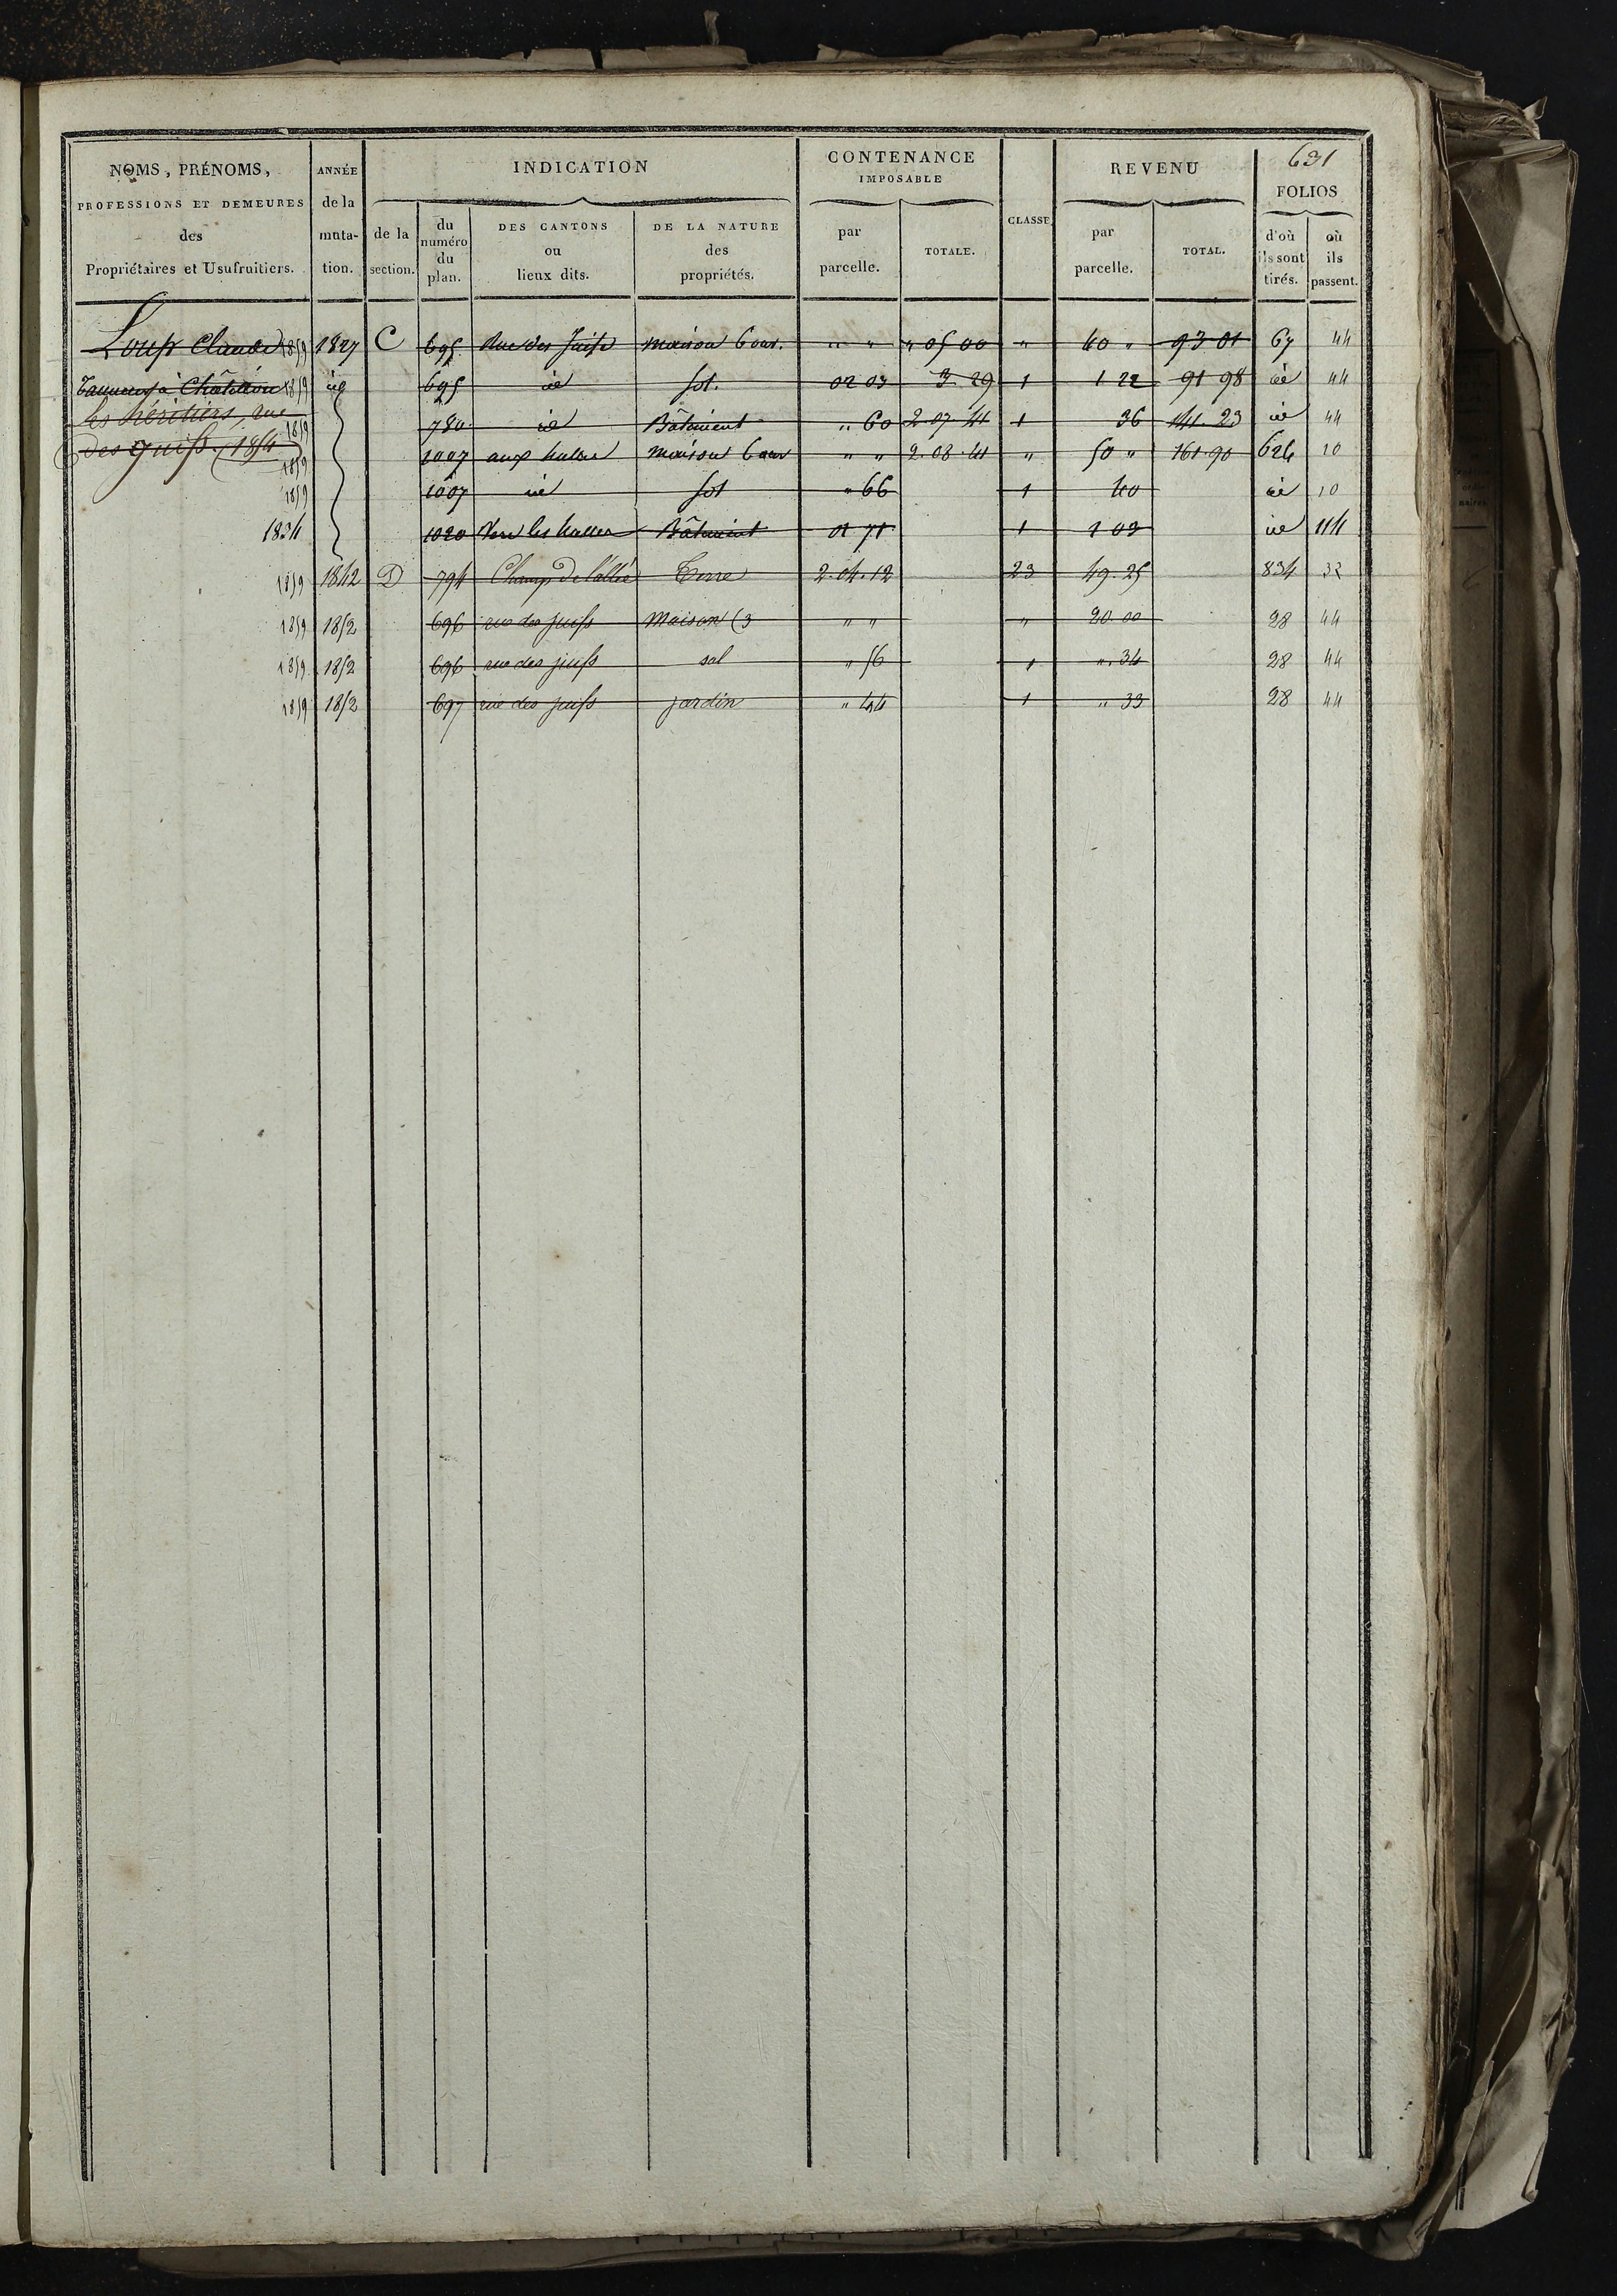 631
NOMS, PRÉNOMS, PROFESSIONS ET DEMEURES des Propriétaires et Usufruitiers. | ANNÉE de la muta- tion. | INDICATION de la section. | du numéro du plan. | DES CANTONS ou lieux dits. | DE LA NATURE des propriétés. | CONTENANCE IMPOSABLE par parcelle. | TOTALE. | CLASSE | REVENU par parcelle. | TOTAL. | FOLIOS d'où ils sont tirés. | où ils passent.
Loup Claude 1859 | 1827 | C | 695 | Rue des Juifs | maison 6 ouv. | " " | " 05 00 | " | 40 " | 93 01 | 67 | 44
Tanneur à Châtillon 1859 | id | 695 | id | sol. | 02 03 | 3 29 | 1 | 1 22 | 91 98 | id | 44
les héritiers, rue 1859 | 780 | id | Bâtiment | " 60 | 2.07 41 | 1 | 36 | 141.23 | id | 44
des juifs. (1854) 1859 | 1007 | aux halles | maison 6 ouv | " " | 2.08.41 | " | 50 " | 161.90 | 624 | 10
1859 | 1007 | id | sol | " 66 | 1 | 40 | id | 10
1834 | 1020 | Vers les halles | Bâtiment | 01 71 | 1 | 1 03 | id | 114
1859 | 1842 | D | 794 | Champ de l'allée | Terre | 2.04.12 | 23 | 49.25 | 834 | 32
1859 | 1852 | 696 | rue des juifs | Maison (3 | " " | " | 20.00 | 28 | 44
1859 | 1852 | 696 | rue des juifs | sol | " 56 | 1 | ".34 | 28 | 44
1859 | 1852 | 697 | rue des juifs | jardin | " 44 | 1 | " 33 | 28 | 44